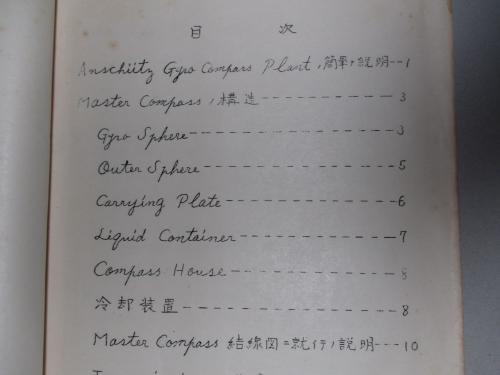 目 次
Anschütz Gyro Compass Plant ノ簡単ナ説明---1
Master Compass ノ構造 ---- 3
Gyro Sphere ---- 3
Outer Sphere ---- 5
Carrying Plate ---- 6
Liquid Container ---- 7
Compass House ---- 8
冷却装置 ---- 8
Master Compass 結線図ニ就行ノ説明---10